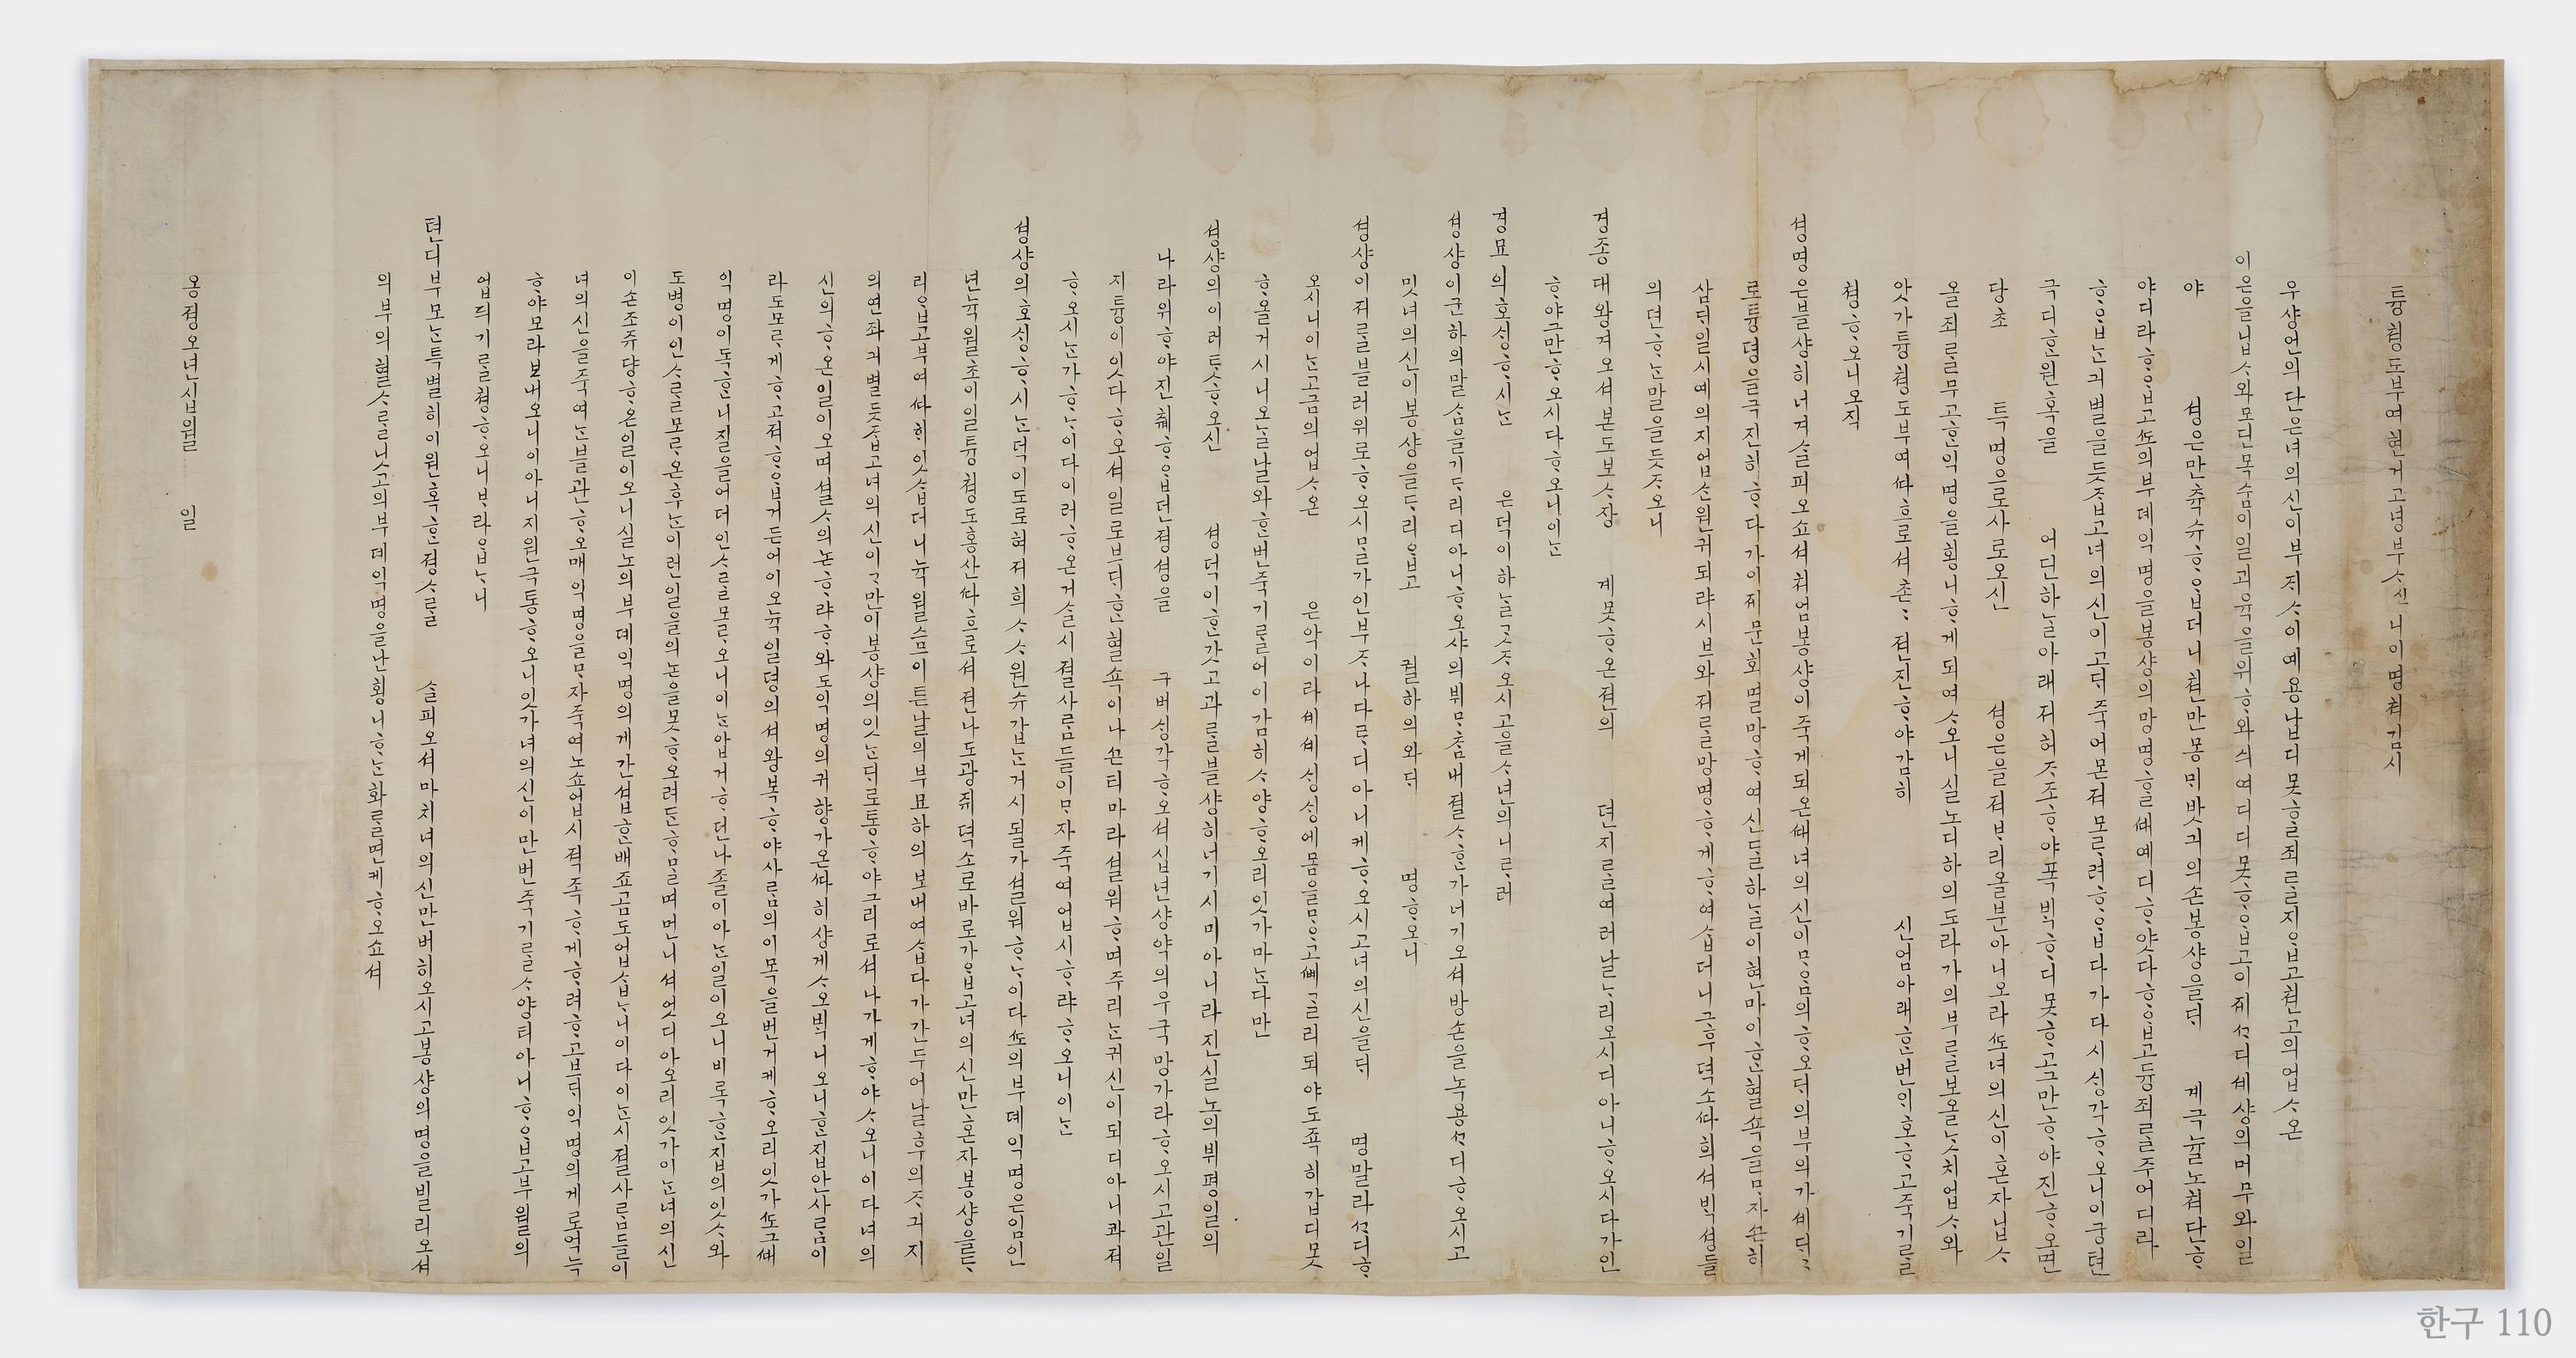 튱쳥도부여현거고녕부ᄉᆞ신니이명쳐김시
우샹언의단은녀의신이부지ᄉᆞ이예용납디못ᄒᆞᆯ죄ᄅᆞᆯ지ᄋᆞᆸ고쳔고의업ᄉᆞ온
이은을닙ᄉᆞ와모딘목숨이일괴육을위ᄒᆞ와싀여디디못ᄒᆞᄋᆞᆸ고이제ᄭᆞ디셰샹의머무와일
야 셩은만츅슈ᄒᆞᄋᆞᆸ더니쳔만몽ᄆᆡ밧긔의손봉샹을ᄃᆡ 계극뉼노쳐단ᄒᆞ
야디라ᄒᆞᄋᆞᆸ고ᄯᅩ의부뎨익명을봉샹의망명ᄒᆞᆯ제예디ᄒᆞ얏다ᄒᆞᄋᆞᆸ고듕죄ᄅᆞᆯ주어디라
ᄒᆞᄋᆞᆸᄂᆞᆫ긔별을듯ᄌᆞᆸ고녀의신이고ᄃᆡ죽어몬져모ᄅᆞ려ᄒᆞᄋᆞᆸ다가다시ᄉᆡᆼ각ᄒᆞ오니이궁텬
극디ᄒᆞᆫ원혹을 어딘하ᄂᆞᆯ아래저허ᄌᆞ조ᄒᆞ야폭ᄇᆡᆨᄒᆞ디못ᄒᆞ고그만ᄒᆞ야진ᄒᆞ오면
당초 특명으로사로오신 셩은을져ᄇᆞ리올분아니오라ᄯᅩ녀의신이혼자닙ᄉᆞ
올죄ᄅᆞᆯ무고ᄒᆞᆫ익명을횡니ᄒᆞ게되여ᄉᆞ오니실노디하의도라가의부ᄅᆞᆯ보올ᄂᆞᆺ치업ᄉᆞ와
앗가튱쳥도부여ᄯᅡ흐로셔촌촌젼진ᄒᆞ야감히 신엄아래ᄒᆞᆫ번ᄋᆡ호ᄒᆞ고죽기ᄅᆞᆯ
쳥ᄒᆞ오니오직
셩명은블샹히너겨ᄉᆞᆯ피오쇼셔쳐엄봉샹이죽게되온ᄣᅢ녀의신이ᄆᆞᄋᆞᆷ의ᄒᆞ오ᄃᆡ의부의가셰ᄃᆡᄃᆡ
로튱뎡을극진히ᄒᆞ다가이제문회멸망ᄒᆞ여신들하ᄂᆞᆯ이현마이ᄒᆞᆫ혈쇽을ᄆᆞ자ᄭᅳᆫ히
삼ᄃᆡ일시예의지업ᄉᆞᆫ원귀되랴시브와저ᄅᆞᆯ망명ᄒᆞ게ᄒᆞ여ᄉᆞᆸ더니그후뎍소ᄯᅡ희셔ᄇᆡᆨ셩들
의뎐ᄒᆞᄂᆞᆫ말을듯ᄌᆞ오니
경종대왕겨오셔본도보ᄉᆞ장 계못ᄒᆞ온젼의 뎐지ᄅᆞᆯ여러날ᄂᆞ리오시디아니ᄒᆞ오시다가인
ᄒᆞ야그만ᄒᆞ오시다ᄒᆞ오니이ᄂᆞᆫ
경묘의호ᄉᆡᆼᄒᆞ시ᄂᆞᆫ 은덕이하ᄂᆞᆯᄀᆞᆺᄌᆞ오시고을ᄉᆞ년의니ᄅᆞ러
셩샹이군하의말ᄉᆞᆷ을기ᄃᆞ리디아니ᄒᆞ오샤의ᄡᅵᄆᆞᄎᆞᆷ내졀ᄉᆞᄒᆞᆫ가너기오셔방손을녹용ᄭᆞ디ᄒᆞ오시고
밋녀의신이봉샹을ᄃᆞ리ᄋᆞᆸ고 궐하의와ᄃᆡ 명ᄒᆞ오니
셩샹이저ᄅᆞᆯ블러위로ᄒᆞ오시ᄆᆞᆯ가인부ᄌᆞ나다ᄅᆞ디아니케ᄒᆞ오시고녀의신을ᄃᆡ 명말라ᄭᆞ디ᄒᆞ
오시니이ᄂᆞᆫ고금의업ᄉᆞ온 은악이라셰셰ᄉᆡᆼᄉᆡᆼ에몸을ᄆᆞᄋᆞ고ᄲᅧᄀᆞᆯ리되야도죡히갑디못
ᄒᆞ올거시니온ᄂᆞᆯ날와ᄒᆞᆫ번죽기ᄅᆞᆯ어이감히ᄉᆞ양ᄒᆞ오리잇가마ᄂᆞᆫ다만
셩샹의이러ᄐᆞᆺᄒᆞ오신 셩덕이ᄒᆞᆫ갓고과ᄅᆞᆯ블샹히너기시미아니라진실노의ᄡᅵ평일의
나라위ᄒᆞ야진췌ᄒᆞᄋᆞᆸ던졍셩을 구버ᄉᆡᆼ각ᄒᆞ오셔십년샹약의우국망가라ᄒᆞ오시고관일
지튱이잇다ᄒᆞ오셔일로브터ᄒᆞᆫ혈쇽이나ᄭᅳᆫ티마라셜워ᄒᆞ며주리ᄂᆞᆫ귀신이되디아니콰져
ᄒᆞ오시ᄂᆞᆫ가ᄒᆞᄂᆞ이다이러ᄒᆞ온거ᄉᆞᆯ시졀사ᄅᆞᆷ들이ᄆᆞ자죽여업시ᄒᆞ랴ᄒᆞ오니이ᄂᆞᆫ
셩샹의호ᄉᆡᆼᄒᆞ시ᄂᆞᆫ덕이도로혀저희ᄉᆞᄉᆞ원슈갑ᄂᆞᆫ거시될가셜워ᄒᆞᄂᆞ이다ᄯᅩ의부뎨익명은임인
년뉵월초이일튱쳥도홍산ᄯᅡ흐로셔젼나도광쥐뎍소로바로가ᄋᆞᆸ고녀의신만혼자봉샹을ᄃᆞ
리ᄋᆞᆸ고부여ᄯᅡᄒᆡ잇ᄉᆞᆸ더니뉵월스므이튼날의부묘하의보내여ᄉᆞᆸ다가간두어날후의ᄌᆞ긔지
의연좌긔별듯ᄌᆞᆸ고녀의신이ᄀᆞ만이봉샹의잇ᄂᆞᆫᄃᆡ로통ᄒᆞ야그리로셔나가게ᄒᆞ야ᄉᆞ오니이다녀의
신의ᄒᆞ온일이오며셜ᄉᆞ의논ᄒᆞ랴ᄒᆞ와도익명의귀향가온ᄯᅡ히샹게ᄉᆞ오ᄇᆡᆨ니오니ᄒᆞᆫ집안사ᄅᆞᆷ이
라도모ᄅᆞ게ᄒᆞ고져ᄒᆞᄋᆞᆸ거든어이오뉵일뎡의셔왕복ᄒᆞ야사ᄅᆞᆷ의이목을번거케ᄒᆞ오리잇가ᄯᅩ그ᄣᅢ
익명이독ᄒᆞᆫ니질을어더인ᄉᆞᄅᆞᆯ모ᄅᆞ오니이ᄂᆞᆫ압거ᄒᆞ던나졸이아ᄂᆞᆫ일이오니비록ᄒᆞᆫ집의잇ᄉᆞ와
도병이인ᄉᆞᄅᆞᆯ모ᄅᆞ온후ᄂᆞᆫ이런일을의논을못ᄒᆞ오려든ᄒᆞ믈며먼니셔엇디아오리잇가이ᄂᆞᆫ녀의신
이손조쥬댱ᄒᆞ온일이오니실노의부뎨익명의게간셥ᄒᆞᆫ배죠곰도업ᄉᆞᆸᄂᆞ니이다이ᄂᆞᆫ시졀사ᄅᆞᆷ들이
녀의신을죽여ᄂᆞᆫ블관ᄒᆞ오매익명을ᄆᆞ자죽여노쇼업시젹족ᄒᆞ게ᄒᆞ려ᄒᆞ고브ᄃᆡ익명의게로억늑
ᄒᆞ야모라보내오니이아니지원극통ᄒᆞ오니잇가녀의신이만번죽기ᄅᆞᆯᄉᆞ양티아니ᄒᆞᄋᆞᆸ고부월의
업듸기ᄅᆞᆯ쳥ᄒᆞ오니ᄇᆞ라ᄋᆞᆸᄂᆞ니
텬디부모ᄂᆞᆫ특별히이원혹ᄒᆞᆫ졍ᄉᆞᄅᆞᆯ ᄉᆞᆯ피오셔마치녀의신만버히오시고봉샹의명을빌리오셔
의부의혈ᄉᆞᄅᆞᆯ니ᄉᆞ고의부뎨익명을난횡니ᄒᆞᄂᆞᆫ화ᄅᆞᆯ면케ᄒᆞ오쇼셔
옹졍오년시ᄇᆞ월 일
한구 110